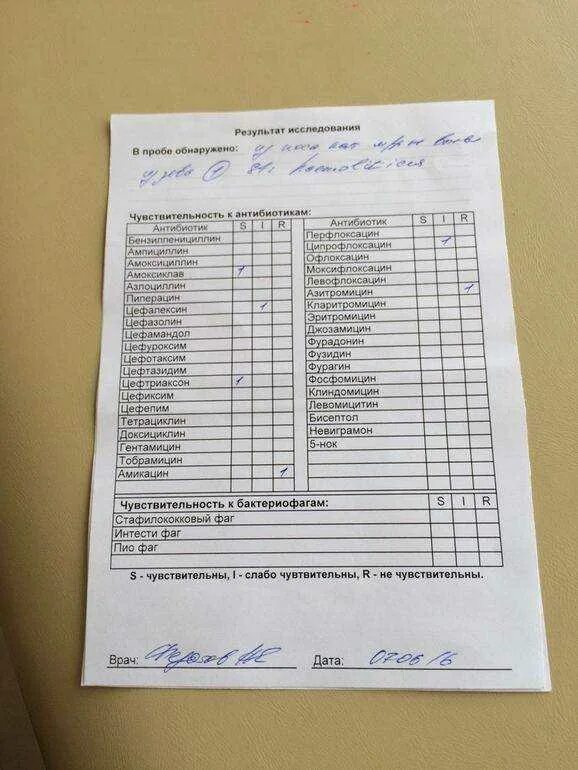 Результат исследования
В пробе обнаружено: из носа
из зева
Чувствительность к антибиотикам:
Антибиотик S I R
Бензилпенициллин
Ампициллин
Амоксициллин
Амоксиклав 1
Азлоциллин
Пиперацин
Цефалексин 1
Цефазолин
Цефамандол
Цефуроксим
Цефотаксим
Цефтазидим
Цефтриаксон 1
Цефиксим
Цефелим
Тетрациклин
Доксициклин
Гентамицин
Тобрамицин
Амикацин 1
Антибиотик S I R
Перфлоксацин
Ципрофлоксацин 1
Офлоксацин
Моксифлоксацин
Левофлоксацин
Азитромицин 1
Кларитромицин
Эритромицин
Джозамицин
Фурадонин
Фузидин
Фурагин
Фосфомицин
Клиндомицин
Левомицитин
Бисептол
Невиграмон
5-нок
Чувствительность к бактериофагам: S I R
Стафилококковый фаг
Интести фаг
Пио фаг
S - чувствительны, I - слабо чувтвительны, R - не чувствительны.
Врач: Дата: 070616